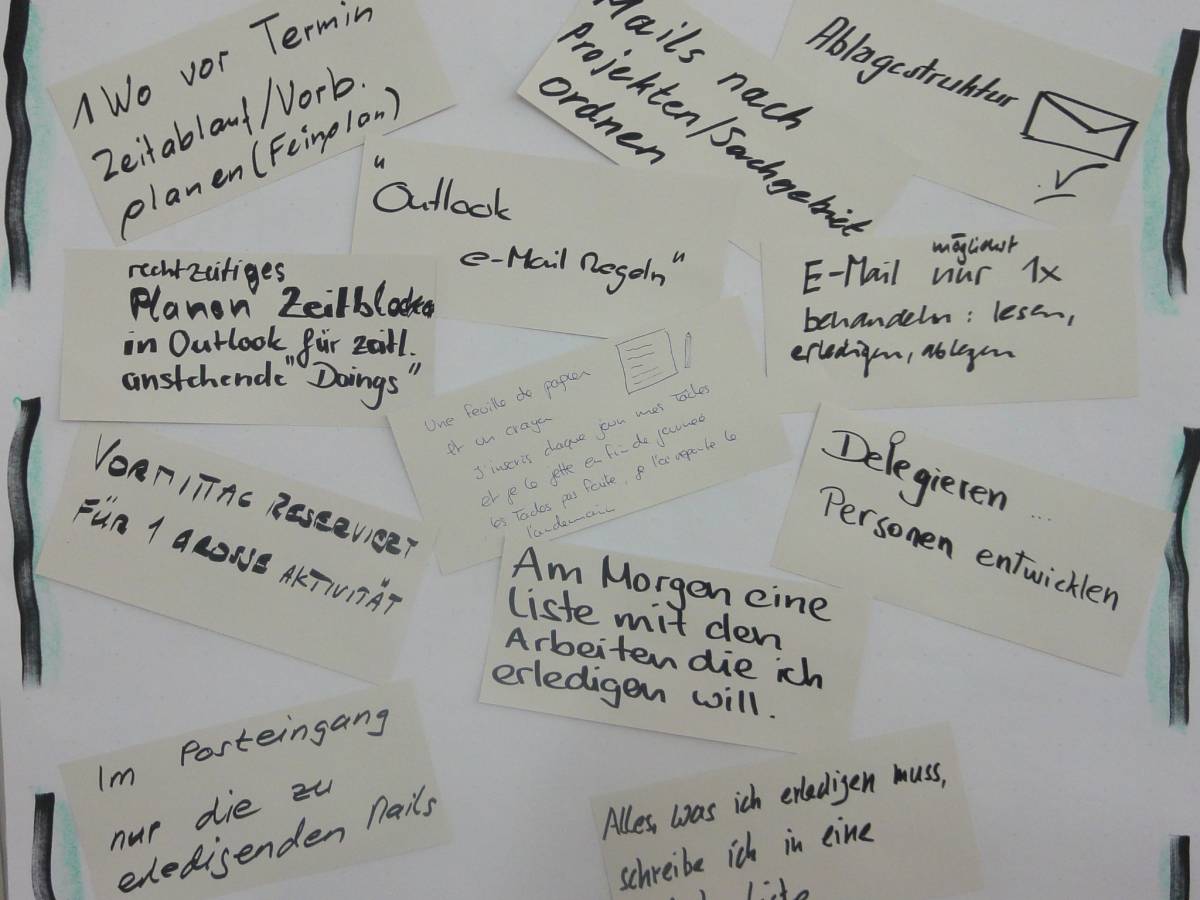 1 Wo vor Termin
Zeitablauf/Vorb.
planen (Feinplan)
Mails nach
Projekten/Sachgebiet
ordnen
Ablagestruktur
"Outlook
e-Mail Regeln"
rechtzeitiges
Planen Zeitblöcke
in Outlook für zeitl.
anstehende "Doings"
möglichst
E-Mail nur 1x
behandeln: lesen,
erledigen, ablegen
Une feuille de papier
et un crayon
J'inscris chaque jour mes Taches
et je le jette en fin de journée
les Taches pas faite, je l'ai reporte le
landemain
VORMITTAG RESERVIERT
FÜR 1 GROSSE AKTIVITÄT
Delegieren ...
Personen entwicklen
Am Morgen eine
Liste mit den
Arbeiten die ich
erledigen will.
Im Posteingang
nur die zu
erledigenden Mails
Alles, was ich erledigen muss,
schreibe ich in eine